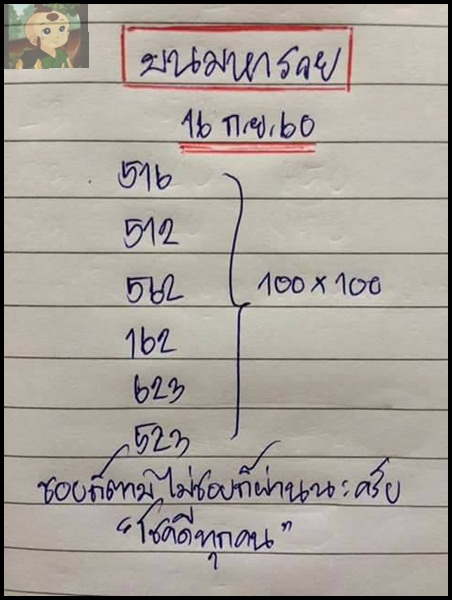 บนมหารวย
16 ก.ย.60
516
512
562
162
623
523
100 x 100
ชอบก็ตาม ไม่ชอบก็ผ่านนะครับ
"โชคดีทุกคน"